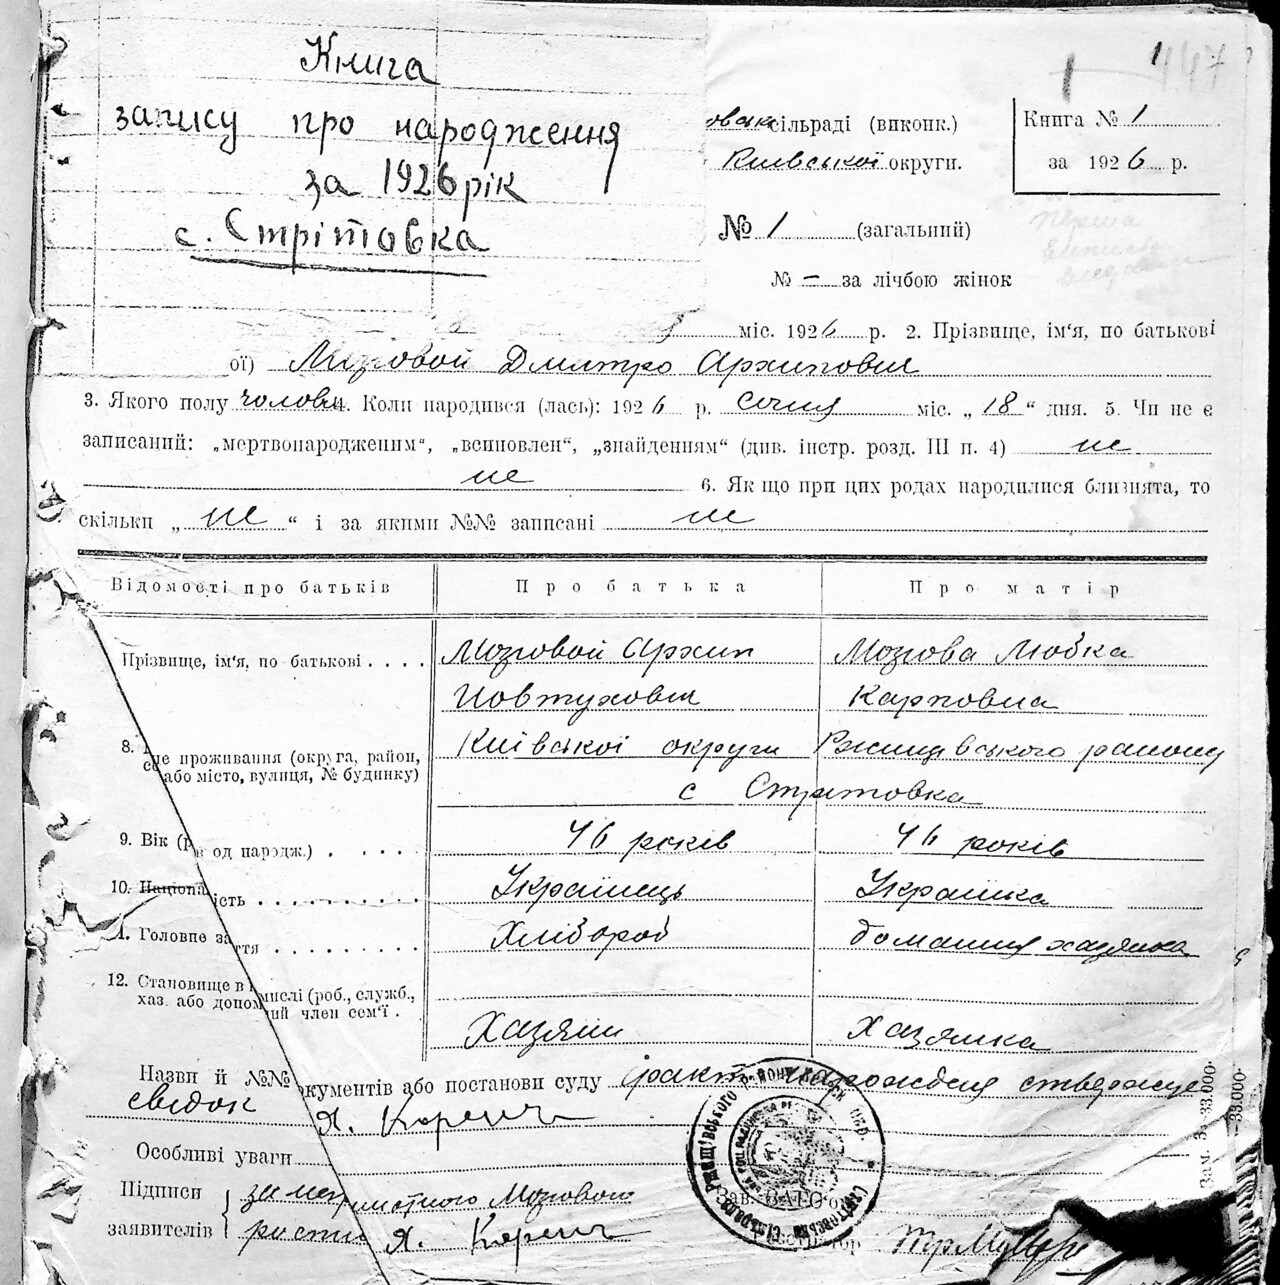 447
Книга
запису про народження
за 1926 рік
с. Стрітовка
сільраді (виконк.)
Київської округи.
Книга № 1
за 1926 р.
№ 1 (загальний)
№ — за лічбою жінок
Перша
міс. 1926 р. 2. Прізвище, ім'я, по батькові
ої) Мозговой Дмитро Архипович
3. Якого полу чоловіч. 4. Коли народився (лась): 1926 р. січня міс. „18“ дня. 5. Чи не є
записаний: „мертвонародженим“, „всиновлен“, „знайденням“ (див. інстр. розд. III п. 4) не
не 6. Якщо при цих родах народилися близнята, то
скільки „не“ і за якими №№ записані не
Відомості про батьків Про батька Про матір
Прізвище, ім'я, по батькові . . . . Мозговой Архип Мозгова Любка
Йовтухович Карповна
8. це проживання (округа, район, Київської округи Ржищівського району
або місто, вулиця, № будинку) с Стритовка
9. Вік од народж.) . . . . . 46 років 46 років
10. Націона ість . . . . . . . . . Українець Українка
1. Головне за ття . . . . . . . . Хлібороб домашня хазяйка
12. Становище в мислі (роб., служб.,
хаз. або допом ий член сем'ї . Хазяин Хазяйка
Назви й №№ окументів або постанови суду факт народження стверджує
свідок Я. Корень
Особливі уваги
Підписи за неграмотного Мозгового
заявителів Я. Корень
Зав. ЗАГС'ом
Зам. 3.-33.000.
-33.000.